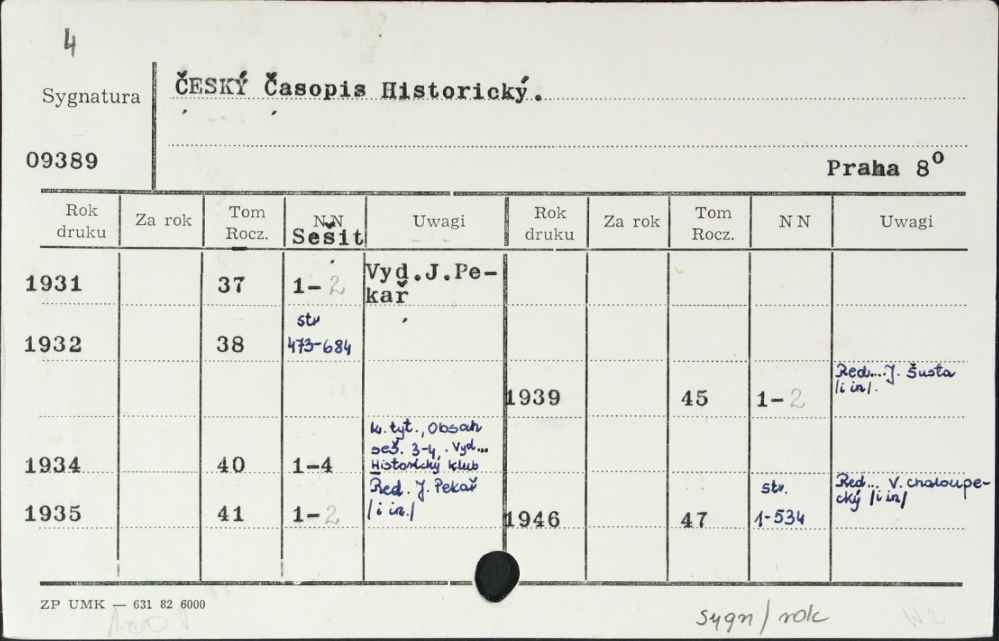 4
Sygnatura
ČESKÝ Časopis Historický.
09389
Praha 8⁰
Rok druku Za rok Tom Rocz. NN Sešit Uwagi Rok druku Za rok Tom Rocz. NN Uwagi
1931 37 1-2 Vyd.J.Pe-
kař
1932 38 str 473-684
1939 45 1-2 Red... J. Šusta
/i in/.
1934 40 1-4 k. tyt., Obsah
seš. 3-4, . Vyd...
Historický klub
1935 41 1-2 Red. J. Pekař
/i in./
1946 47 str. 1-534 Red... V. Chaloupe-
cký /i in/
ZP UMK — 631 82 6000
sygn/rok